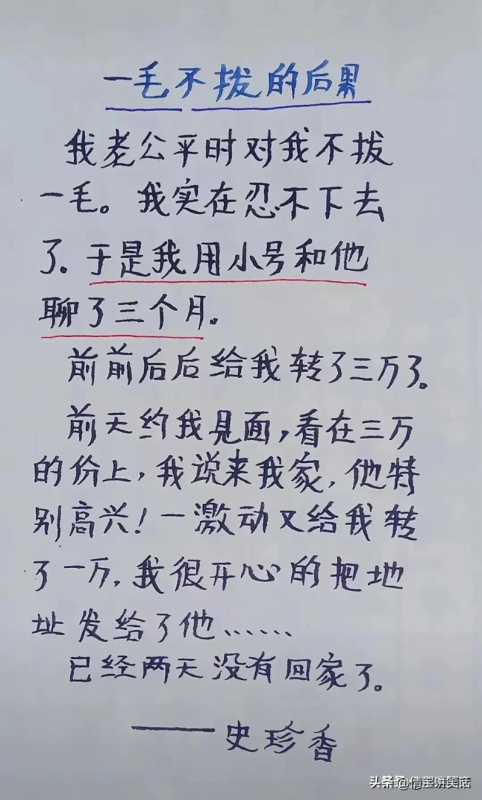 一毛不拨的后果
我老公平时对我不拨
一毛。我实在忍不下去
了.于是我用小号和他
聊了三个月。
前前后后给我转了三万了。
前天约我见面,看在三万
的份上,我说来我家,他特
别高兴!一激动又给我转
了一万,我很开心的把地
址发给了他……
已经两天没有回家了。
——史珍香
头条